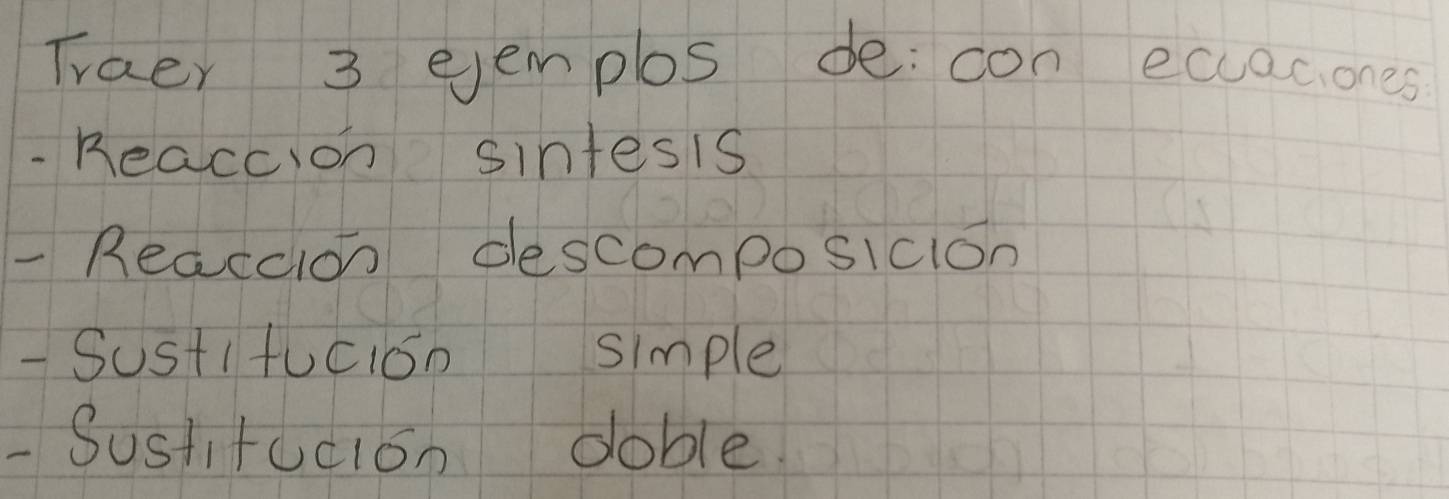 Traer 3 ejemplos de: con ecuaciones:
- Reacción sintesis
- Reaccción descomposición
- Sustitución simple
- Sustitución doble.